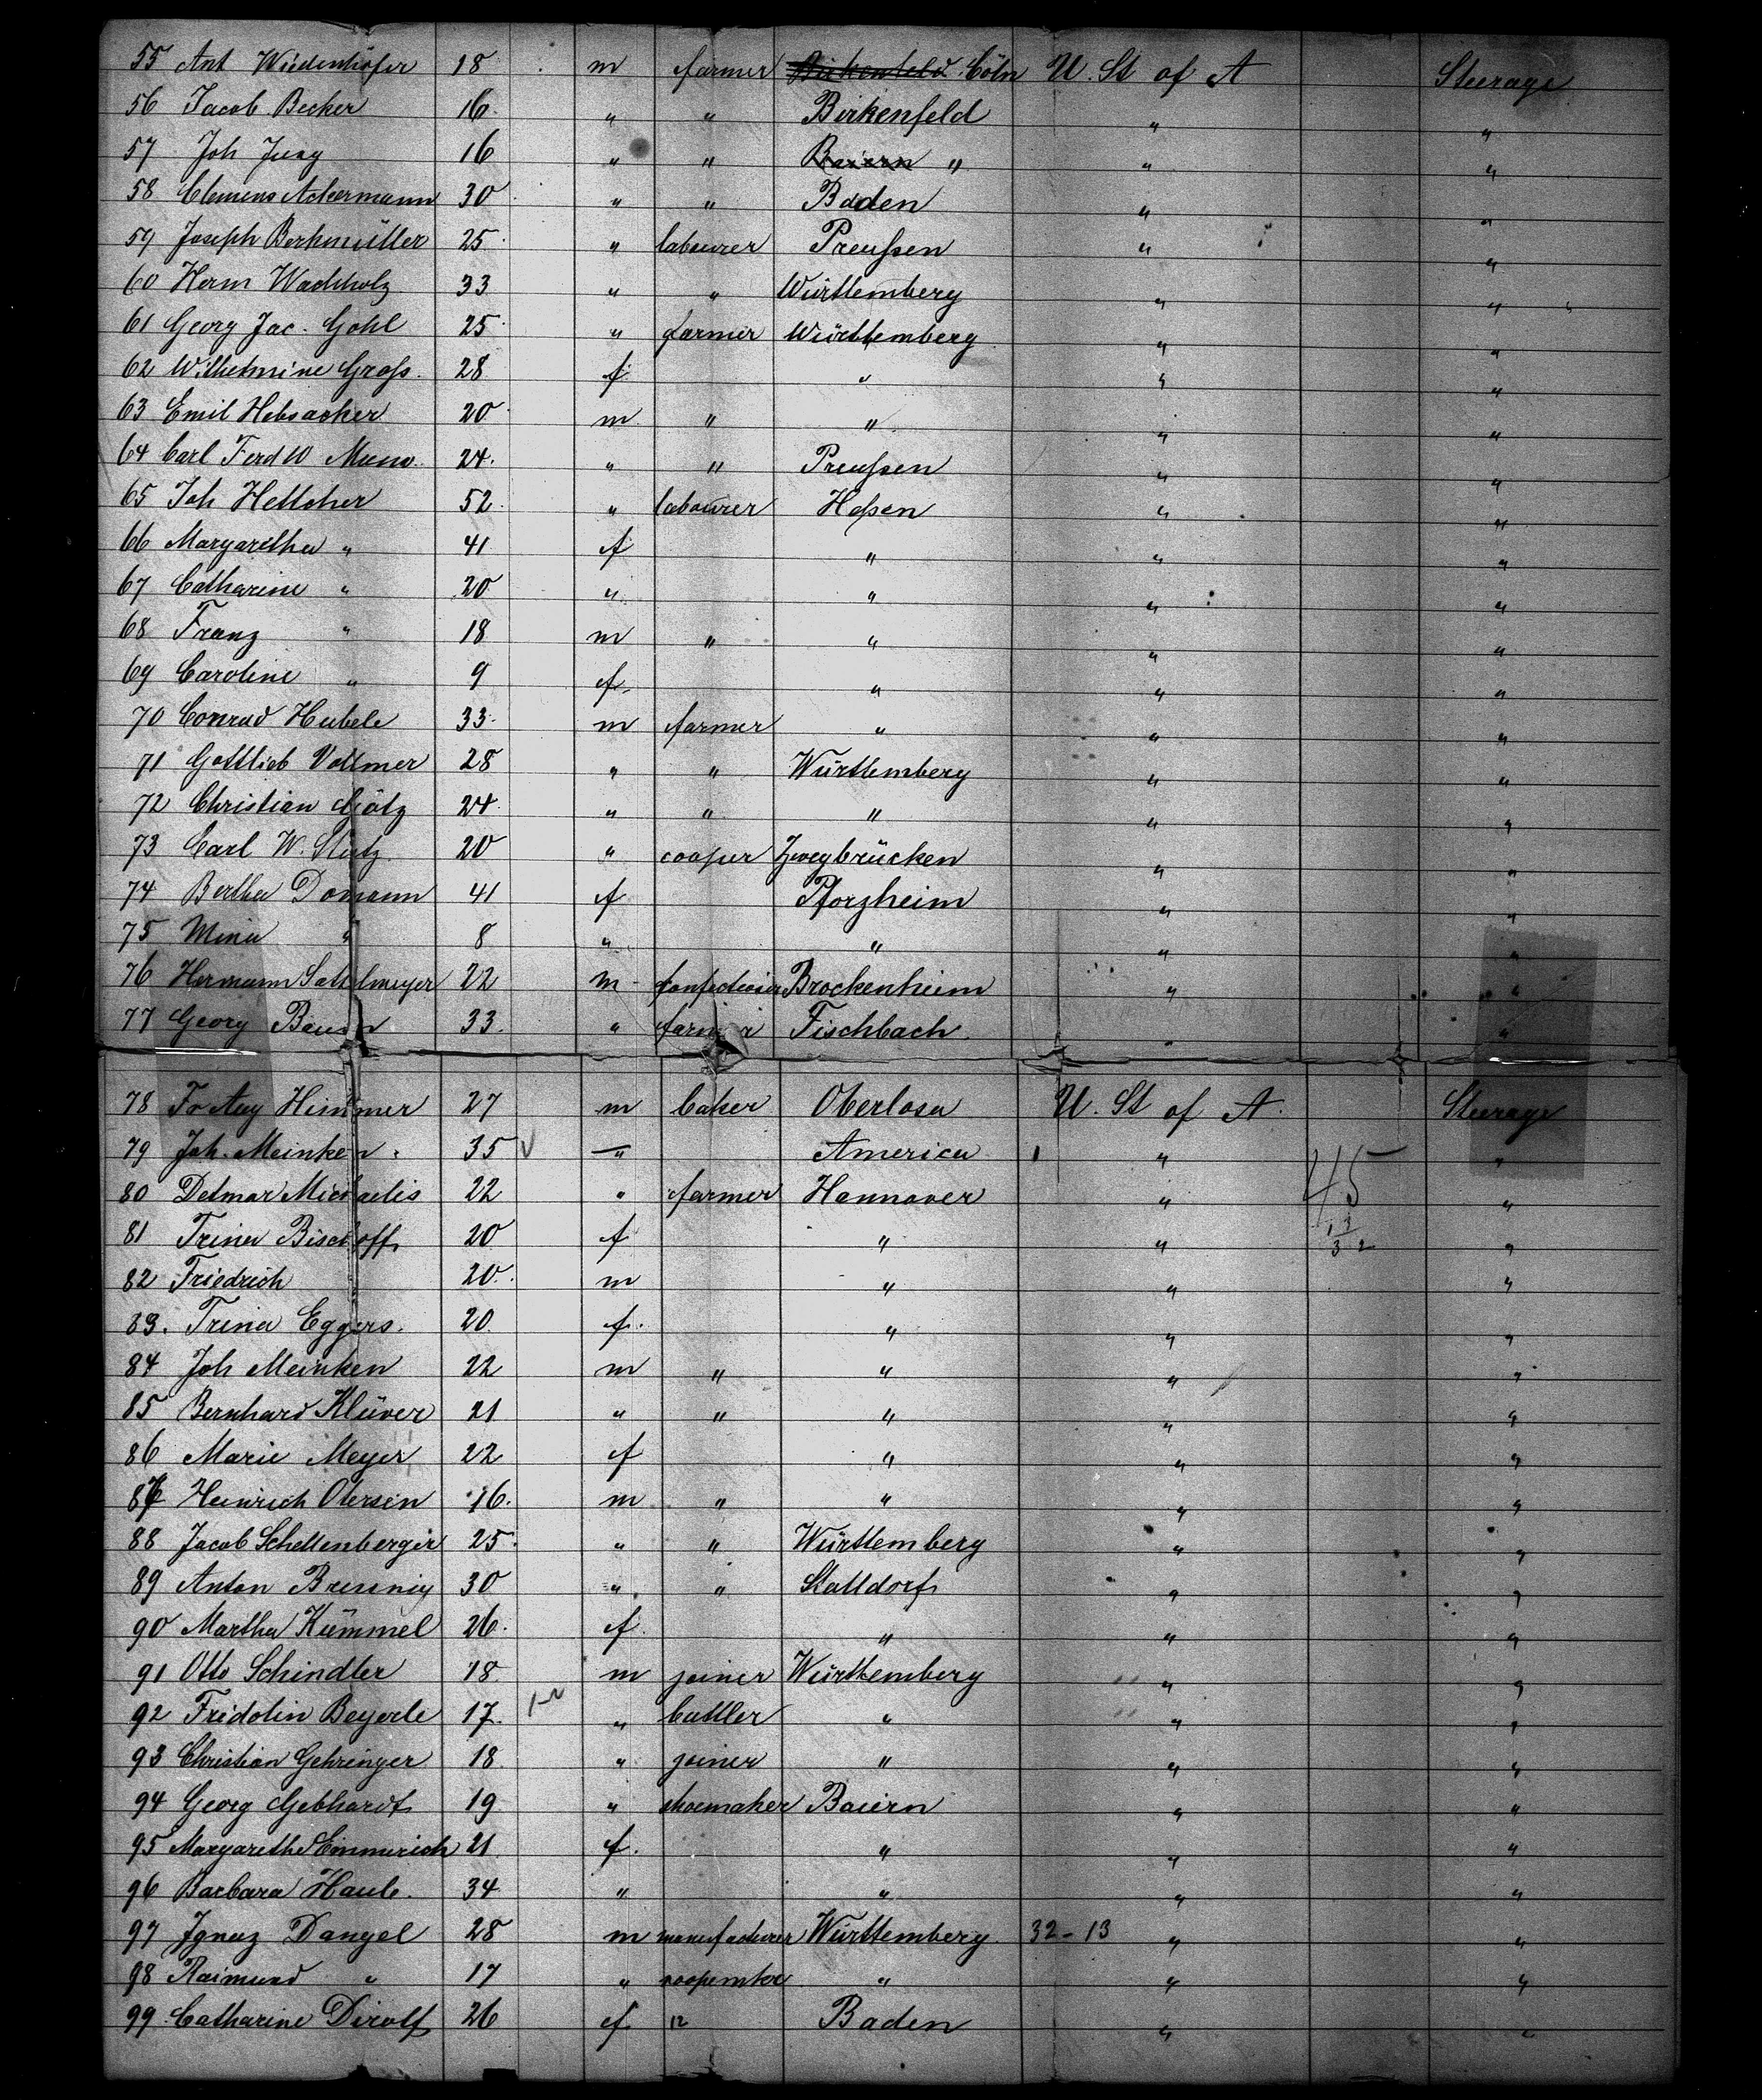 55 Ant Wiedenhöfer 18 m farmer Birkenfeld Cöln U. St of A Steerage
56 Jacob Becker 16 " " Birkenfeld " "
57 Joh Jung 16 " " Baiern " " "
58 Clemens Ackermann 30 " " Baden " "
59 Joseph Berkmüller 25 " labourer Preußen " "
60 Herm Wachholz 33 " " Württemberg " "
61 Georg Jac. Gohl 25 " farmer Württemberg " "
62 Wilhelmine Groß 28 f " " "
63 Emil Hebsacker 20 m " " " "
64 Carl Ferd W 24 " " Preußen " "
65 Joh 52 " labourer Heßen " "
66 Margaretha " 41 f " " "
67 Catharine " 20 " " " "
68 Franz " 18 m " " " "
69 Caroline " 9 f " " "
70 Conrad Hubele 33 m farmer " " "
71 Gottlieb Vollmer 28 " " Württemberg " "
72 Christian Götz 24 " " " " "
73 Carl W. Stutz 20 " cooper Zweybrücken " "
74 Bertha Domann 41 f Pforzheim " "
75 Mina " 8 " " " "
76 Hermann Sattelmeyer 22 m Brockenheim " "
77 Georg 33 " farmer Fischbach " "
78 Aug Himmer 27 m baker Oberlosa U. St of A. Steerage
79 Joh. Meinken 35 " America 1 " "
80 Detmar Michaelis 22 " farmer Hannover " 45 "
81 Trina Bischoff 20 f " " "
82 Friedrich 20 m " " "
83. Trina Eggers 20 f. " " "
84 Joh Meinken 22 m " " " "
85 Bernhard Klüver 21 " " " " "
86 Marie Meyer 22 f " " "
87 Heinrich Otersen 16. m " " " "
88 Jacob Schellenberger 25 " " Württemberg " "
89 Anton Bressnig 30 " " Stalldorf " "
90 Martha Kümmel 26. f " " "
91 Otto Schindler 18 m joiner Württemberg " "
92 Fridolin Beyerle 17. " buttler " " "
93 Christian Gehringer 18 " joiner " " "
94 Georg Gebhardt 19 " shoemaker Baiern " "
95 Margarethe Emmerich 21 f. " " "
96 Barbara Haule 34 " " " "
97 Ignaz Dangel 28 m manufacturer Württemberg 32-13 " "
98 Raimund " 17 " " " "
99 Catharine Dirolf 26 f 12 Baden " "